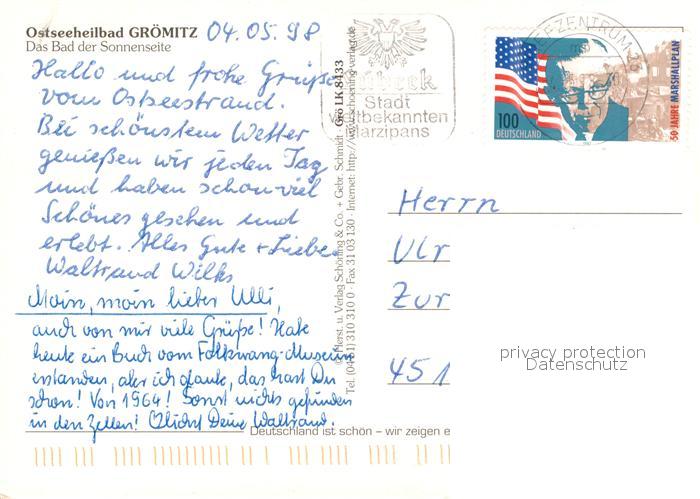 Ostseeheilbad GRÖMITZ 04.05.98
Das Bad der Sonnenseite
Hallo und frohe Grüße
vom Ostseestrand.
Bei schönstem Wetter
genießen wir jeden Tag
und haben schon viel
Schönes gesehen und
erlebt. Alles Gute + Liebe
Waltraud Wilks
Moin, moin lieber Ulli,
auch von mir viele Grüße! Habe
heute ein Buch vom Folkwang-Museum
erstanden, aber ich glaube, das hast Du
schon! Von 1964! Sonst nichts gefunden
in den Zellen! Deine Waltraud.
Deutschland ist schön – wir zeigen e
Verlag Schöning & Co. + Gebr. Schmidt · Grö LK 8433
Tel. (04 51) 310 310 0 · Fax 31 03 130 · Internet: http://www.schoening-verlag.de
Lübeck
Stadt
weltbekannten
Marzipans
BRIEFZENTRUM 23
100
DEUTSCHLAND
50 JAHRE MARSHALLPLAN
Herrn
Ulr
Zur
451
privacy protection
Datenschutz